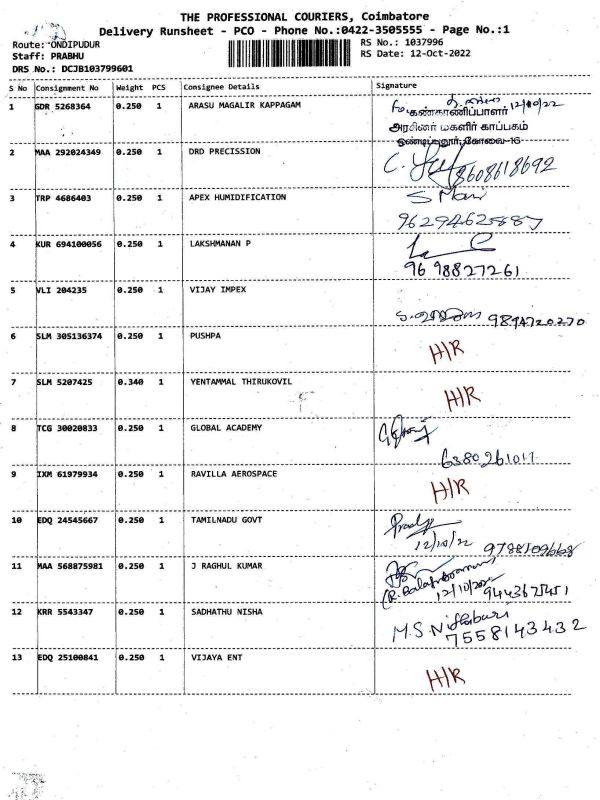 THE PROFESSIONAL COURIERS, Coimbatore
Delivery Runsheet - PCO - Phone No.:0422-3505555 - Page No.:1
Route: ONDIPUDUR
RS No.: 1037996
Staff: PRABHU
RS Date: 12-Oct-2022
DRS No.: DCJB103799601
S No Consignment No Weight PCS Consignee Details Signature
1 GDR 5268364 0.250 1 ARASU MAGALIR KAPPAGAM 12/10/22
கண்காணிப்பாளர்
அரசினர் மகளிர் காப்பகம்
ஒண்டிப்புதூர், கோவை-16
2 MAA 292024349 0.250 1 DRD PRECISSION
8608618692
3 TRP 4686403 0.250 1 APEX HUMIDIFICATION S Mani
9629462887
4 KUR 694100056 0.250 1 LAKSHMANAN P
9698827261
5 VLI 204235 0.250 1 VIJAY IMPEX
9894720270
6 SLM 305136374 0.250 1 PUSHPA H/R
7 SLM 5207425 0.340 1 YENTAMMAL THIRUKOVIL H/R
8 TCG 30020833 0.250 1 GLOBAL ACADEMY
6380261017
9 IXM 61979934 0.250 1 RAVILLA AEROSPACE H/R
10 EDQ 24545667 0.250 1 TAMILNADU GOVT
12/10/22 9788109668
11 MAA 568875981 0.250 1 J RAGHUL KUMAR
9443675451
12 KRR 5543347 0.250 1 SADHATHU NISHA M.S.
7558143432
13 EDQ 25100841 0.250 1 VIJAYA ENT H/R